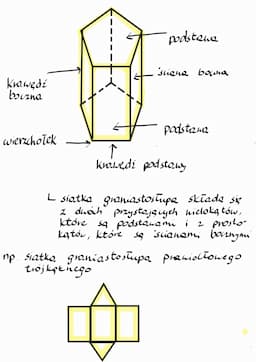 podstawa
ściana boczna
krawędź
boczna
podstawa
wierzchołek
krawędź podstawy
siatka graniastosłupa składa się
z dwóch przystających wielokątów,
które są podstawami i z prosto-
kątów, które są ścianami bocznymi
np siatka graniastosłupa prawidłowego
trójkątnego